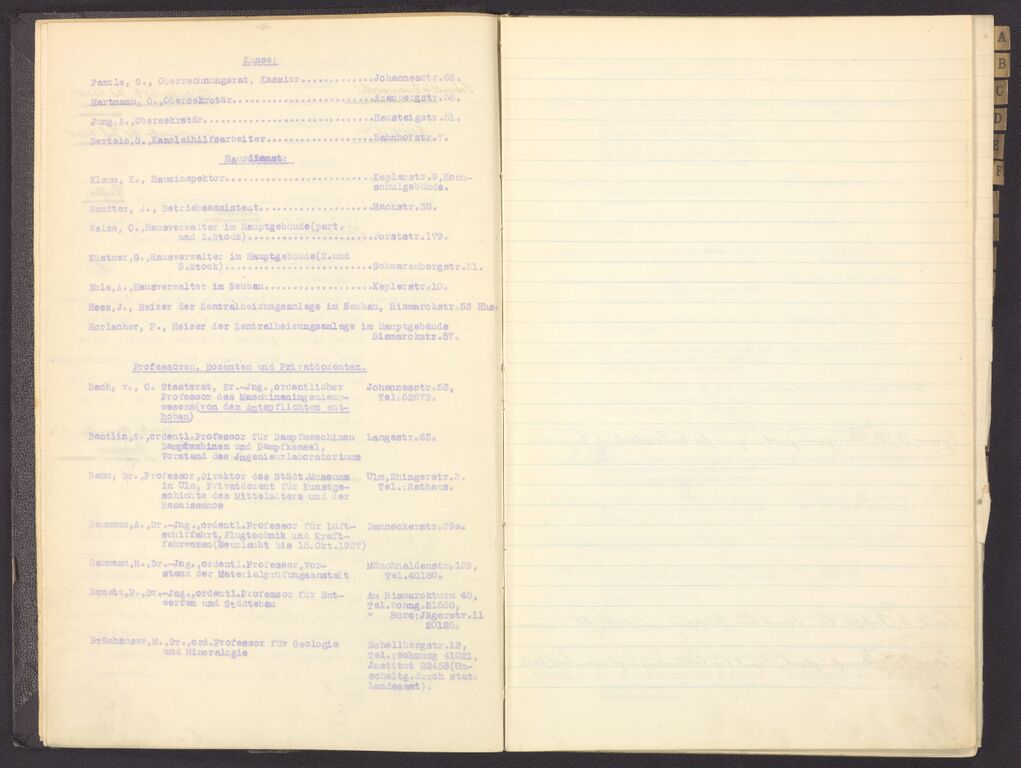 Kasse:
Pantle, G., Oberrechnungsrat, Kassier............Johannesstr.63.
Hartmann, O.,Obersekretär........................Azenbergstr.36.
Jung,A.,Obersekretär.............................Heusteigstr.61.
Bertels,G.,Kanzleihilfsarbeiter..................Bahnhofstr.7.
Hausdienst:
Klaus, K., Hausinspektor.........................Keplerstr.9,Hoch-
schulgebäude.
Gauffer, J., Betriebsassistent...................Hackstr.38.
Weiss, O.,Hausverwalter im Hauptgebäude(part.
und 1.Stock)...................Forststr.179.
Küstner,G.,Hausverwalter im Hauptgebäude(2.und
3.Stock).......................Schwarenbergstr.31.
Eble,A.,Hausverwalter im Neubau..................Keplerstr.10.
Hess,J., Heizer der Zentralheizungsanlage im Neubau, Bismarckstr.53 Hhs.
Horlacher, P., Heizer der Zentralheizungsanlage im Hauptgebäude
Bismarckstr.57.
Professoren, Dozenten und Privatdozenten.
Bach, v., C. Staatsrat, Dr.-Jng.,ordentlicher Johannesstr.53,
Professor des Maschineningenieur- Tel.62672.
wesens(von den Amtspflichten ent-
hoben)
Bantlin,A.,ordentl.Professor für Dampfmaschinen Langestr.63.
Dampfturbinen und Dampfkessel,
Vorstand des Jngenieurlaboratoriums
Baum, Dr.,Professor,Direktor des Städt.Museums Ulm,Ehingerstr.3.
in Ulm, Privatdozent für Kunstge- Tel.:Rathaus.
schichte des Mittelalters und der
Renaissance
Baumann,A.,Dr.-Jng.,ordentl.Professor für Luft- Danneckerstr.39a.
schiffahrt,Flugtechnik und Kraft-
fahrwesen(Beurlaubt bis 15.Okt.1927)
Baumann,R.,Dr.-Jng.,ordentl.Professor,Vor- Mönchhaldenstr.129,
stand der Materialprüfungsanstalt Tel.40180.
Bonatz,P.,Dr.-Jng.,ordentl.Professor für Ent- Am Bismarckturm 45,
werfen und Städtebau Tel.Wohng.21668,
" Büro:Jägerstr.11
20125.
Bräuhäuser,M.,Dr.,ord.Professor für Geologie Schellbergstr.12,
und Mineralogie Tel.:Wohnung 41021,
Jnstitut 22453(Um-
schaltg.durch stat.
Landesamt).
A
B
C
D
E
F